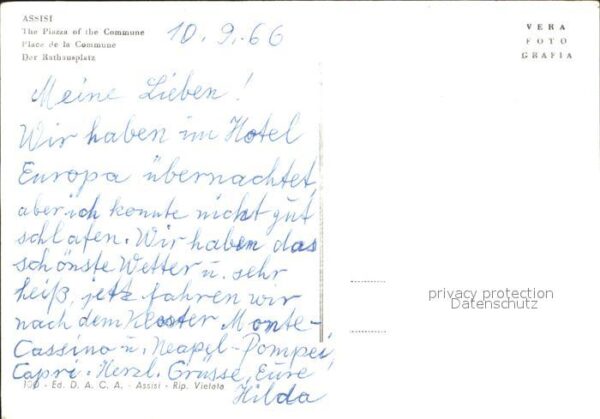 ASSISI
The Piazza of the Commune
Place de la Commune
Der Rathausplatz
10.9.66
VERA
FOTO
GRAFIA
Meine Lieben!
Wir haben im Hotel
Europa übernachtet,
aber ich konnte nicht gut
schlafen. Wir haben das
schönste Wetter u. sehr
heiß, jetz fahren wir
nach dem Kloster Monte-
Cassino u. Neapel-Pompei,
Capri. Herzl. Grüsse, Eure
Hilda
privacy protection
Datenschutz
100 - Ed. D. A. C. A. - Assisi - Rip. Vietata